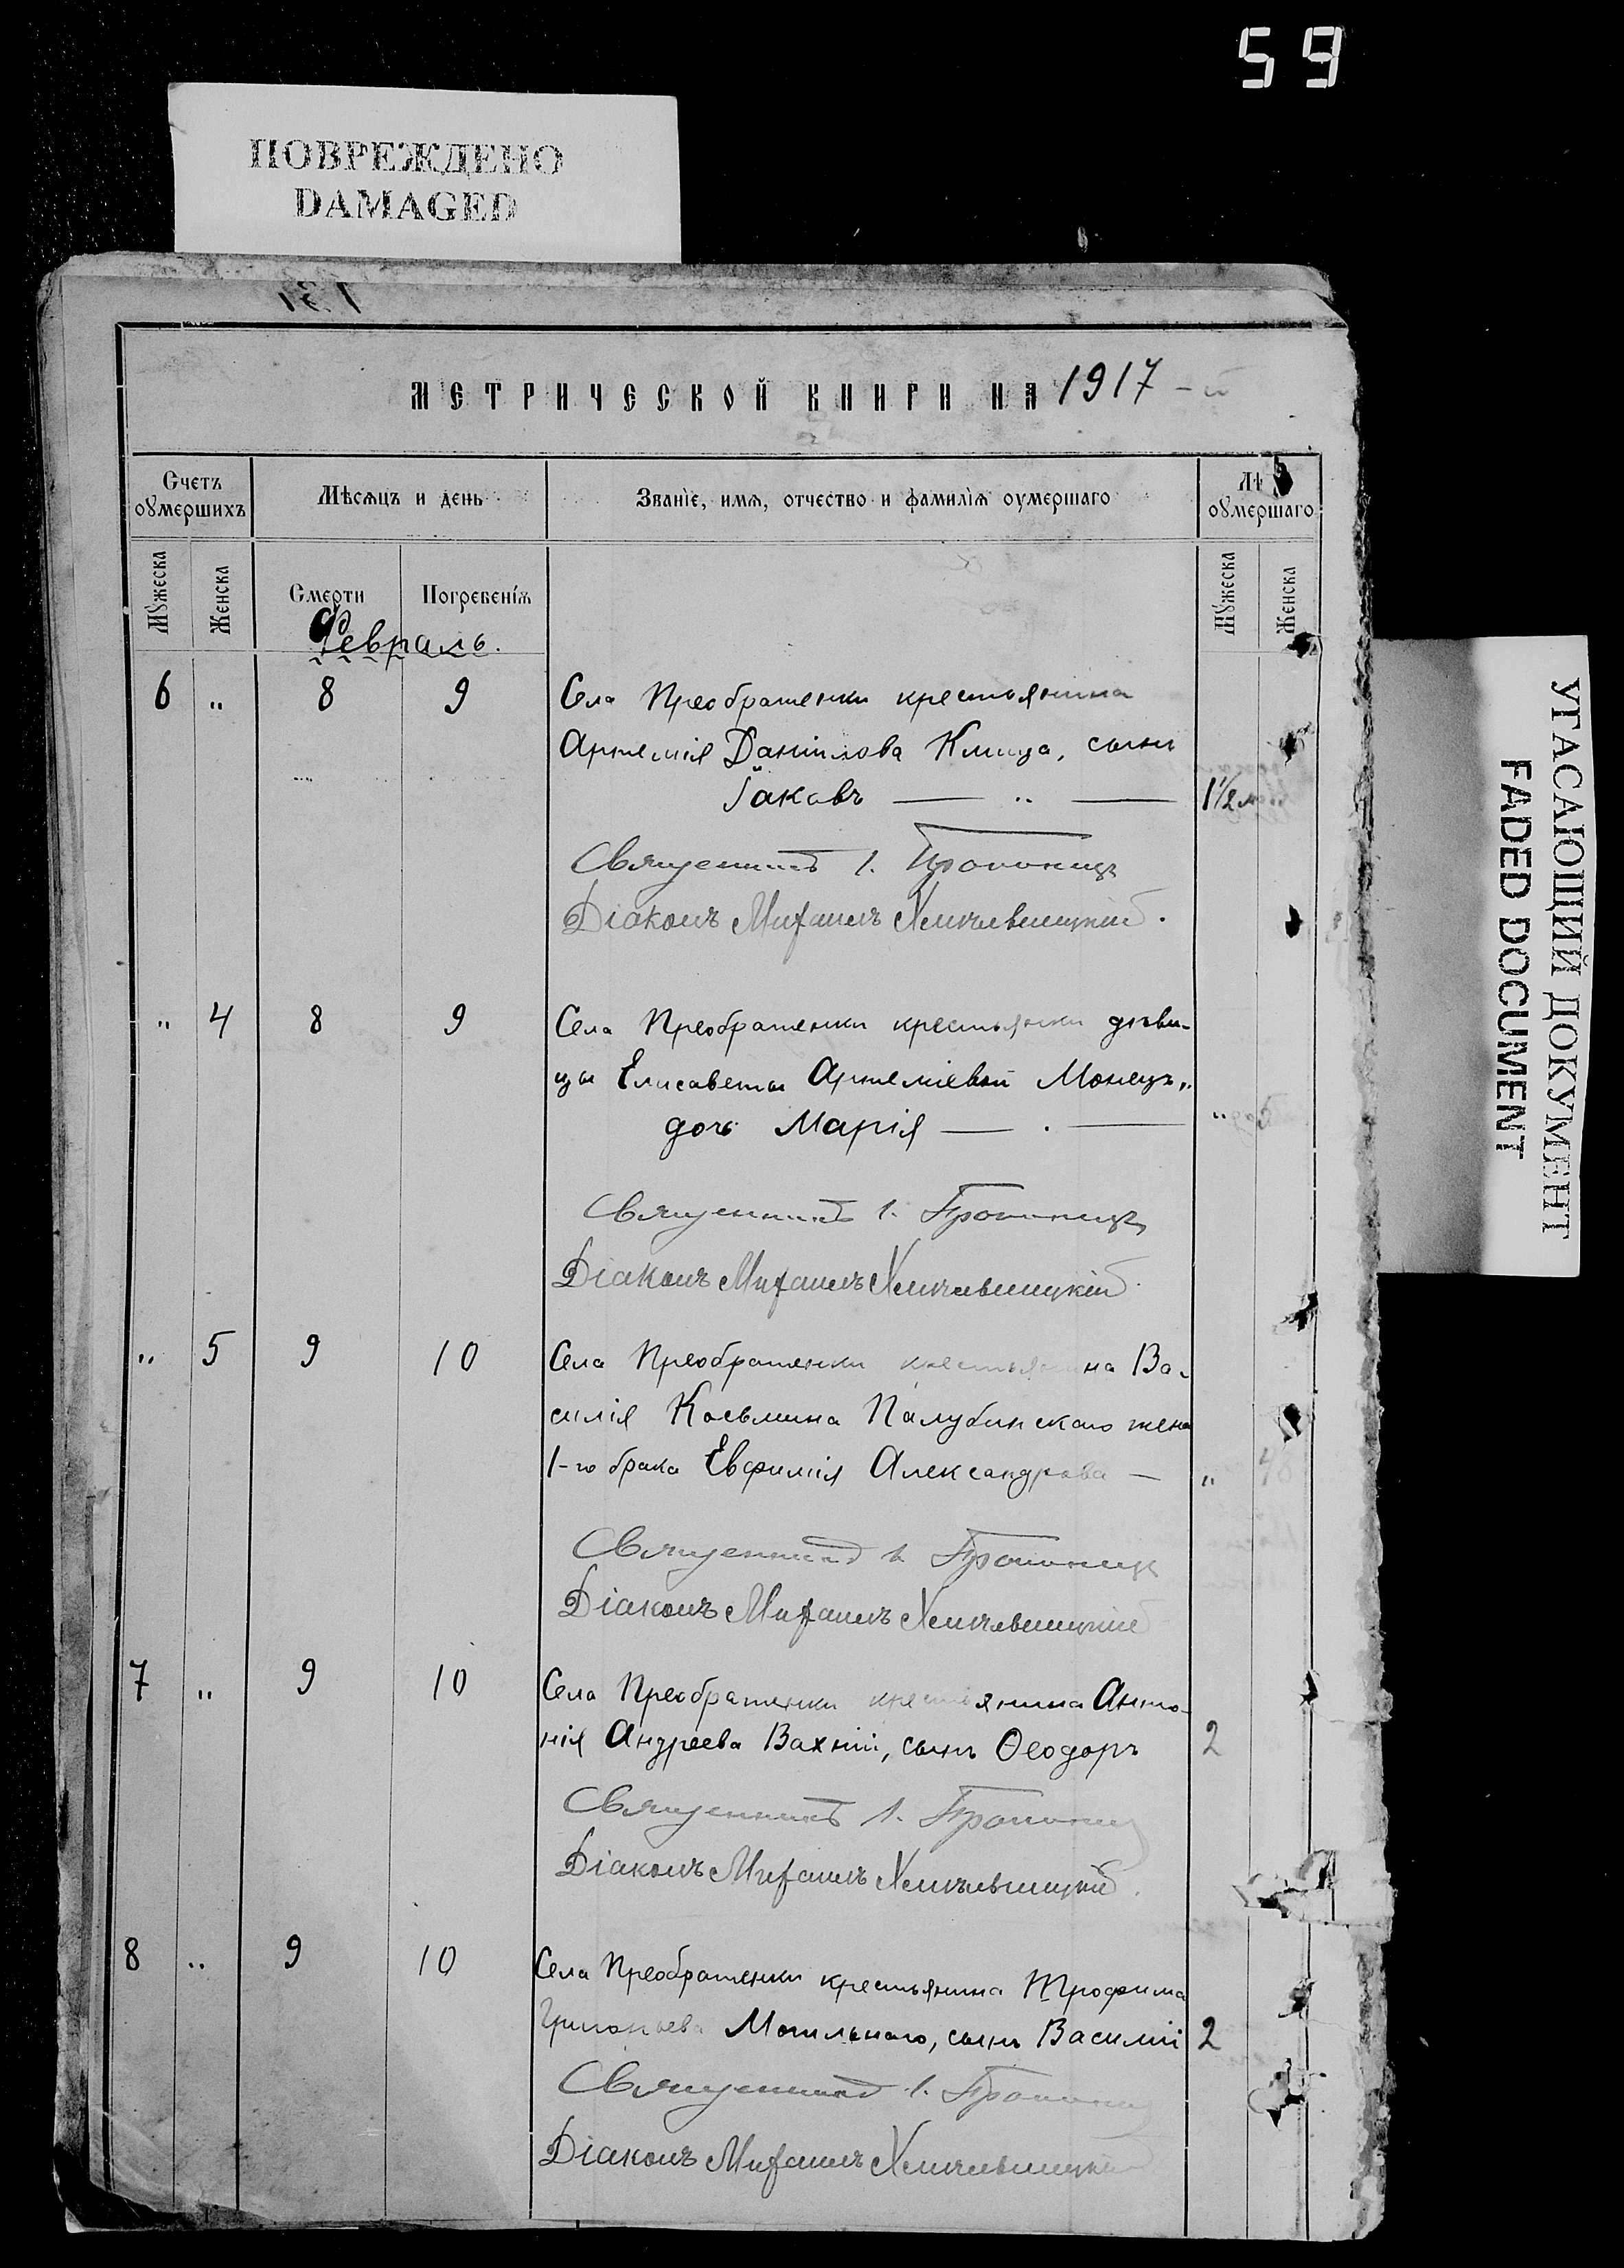 59
ПОВРЕЖДЕНО
DAMAGED
131
МЕТРИЧЕСКОЙ КНИГИ НА 1917-й
Счетъ оумершихъ
Мѣсяцъ и день
Званіе, имя, отчество и фамилія оумершаго
Лѣ
оумершаго
Мужеска
Женска
Смерти
Погребенія
Мужеска
Женска
Февраль.
6 " 8 9 Села Преображенки крестьянина
Артемія Даніилова Кмица, сынъ
Іаковъ — " — 1½ м
Священникъ І.
Діаконъ Михаилъ Хмилевницкій.
" 4 8 9 Села Преображенки крестьянки дѣви-
цы Елисаветы Артеміевой Монецъ,,
дочь Марія — . — "
Священникъ І.
Діаконъ Михаилъ Хмилевницкій
" 5 9 10 Села Преображенки крестьянина Ва-
силія Косьмина Палубинскаго жена
1-го брака Евфимія Александрова — "
Священникъ І.
Діаконъ Михаилъ Хмилевницкій
7 " 9 10 Села Преображенки крестьянина Анто-
нія Андреева Вахній, сынъ Ѳеодоръ 2
Священникъ І.
Діаконъ Михаилъ Хмилевницкій.
8 " 9 10 Села Преображенки крестьянина Трофима
Григорьева Могильнаго, сынъ Василій 2
Священникъ І.
Діаконъ Михаилъ Хмилевницкій
УГАСАЮЩИЙ ДОКУМЕНТ
FADED DOCUMENT